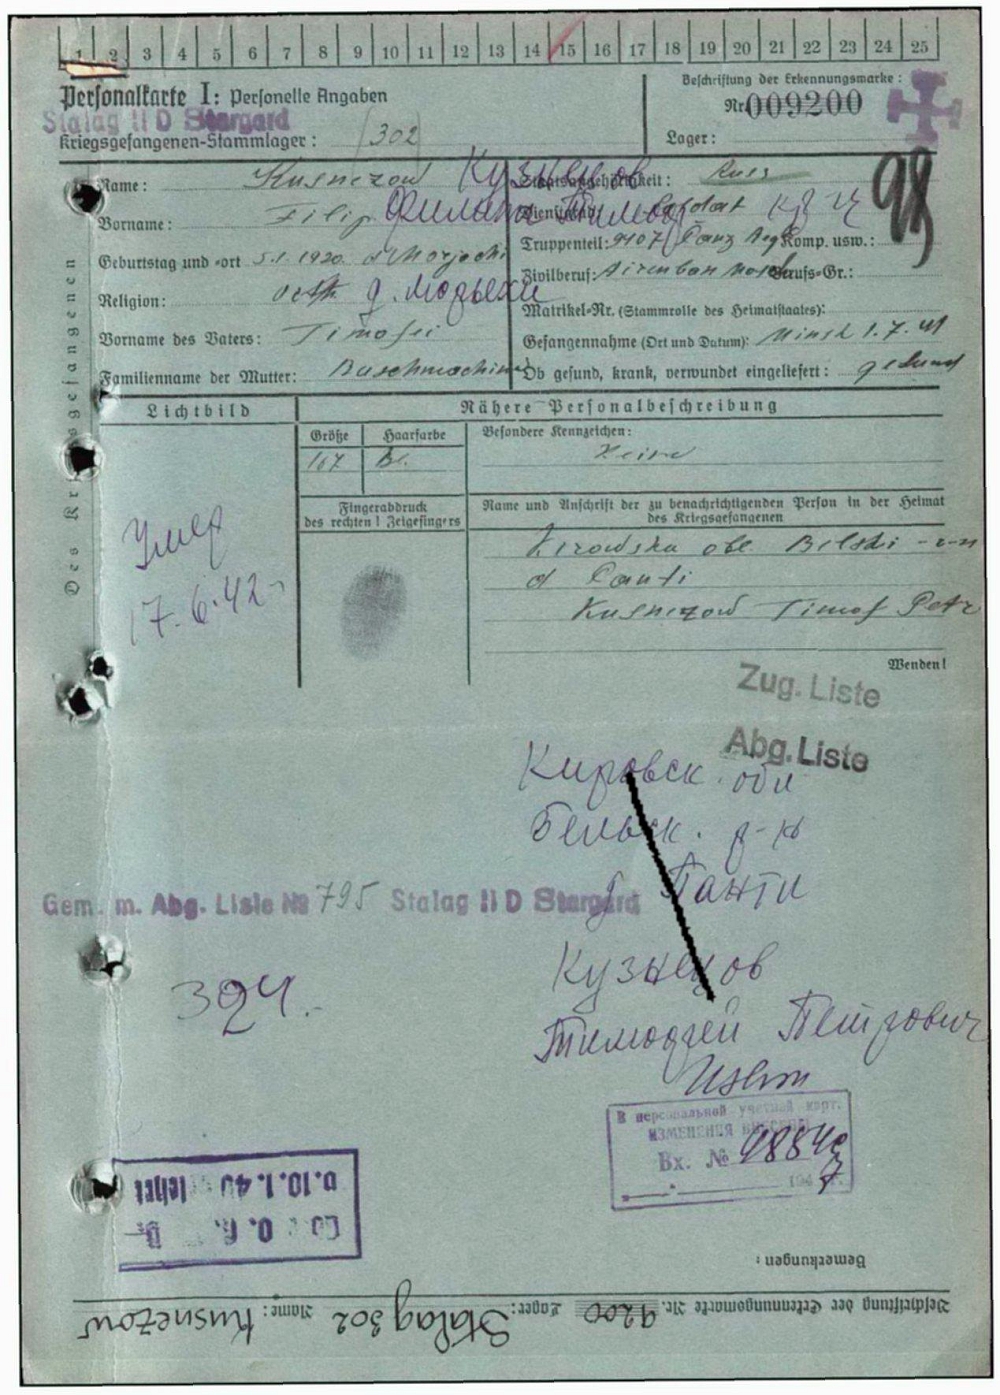 1 2 3 4 5 6 7 8 9 10 11 12 13 14 15 16 17 18 19 20 21 22 23 24 25
Personalkarte I: Personelle Angaben
Beschriftung der Erkennungsmarke:
Nr. 009200
Stalag II D Stargard
Kriegsgefangenen-Stammlager: 302
Lager:
Des Kriegsgefangenen
Name: Kusnezow Кузнецов
Staatsangehörigkeit: Russ
Vorname: Filip Филипп
Dienstgrad: Soldat
98
Truppenteil: 9407 Komp. usw.:
Geburtstag und -ort 5.1.1920. d Morjachi
Zivilberuf: Berufs-Gr.:
Religion: orth д. Морьяхи
Matrikel-Nr. (Stammrolle des Heimatstaates):
Vorname des Vaters: Timofei
Gefangennahme (Ort und Datum): Minsk 1.7.41
Familienname der Mutter: Baschmachina
Ob gesund, krank, verwundet eingeliefert: gesund
Lichtbild
Nähere Personalbeschreibung
Größe
Haarfarbe
Besondere Kennzeichen:
167
Bl.
Keine
Fingerabdruck
des rechten! Zeigefingers
Name und Anschrift der zu benachrichtigenden Person in der Heimat
des Kriegsgefangenen
Умер
17.6.42
Kirowska obl Belski r-n
d Panti
Kusnezow Timof Petr
Wenden!
Zug. Liste
Abg. Liste
Кировск. обл
Бельск. р-н
д Панти
Gem. m. Abg. Liste № 795 Stalag II D Stargard
Кузнецов
324.
Тимофей Петрович
В персональной учетной карт.
ИЗМЕНЕНИЯ ВНЕСЕНЫ
Вх. №
194 7
Bemerkungen:
Beschriftung der Erkennungsmarke Nr. 9200 Lager: Stalag 302 Name: Kusnezow